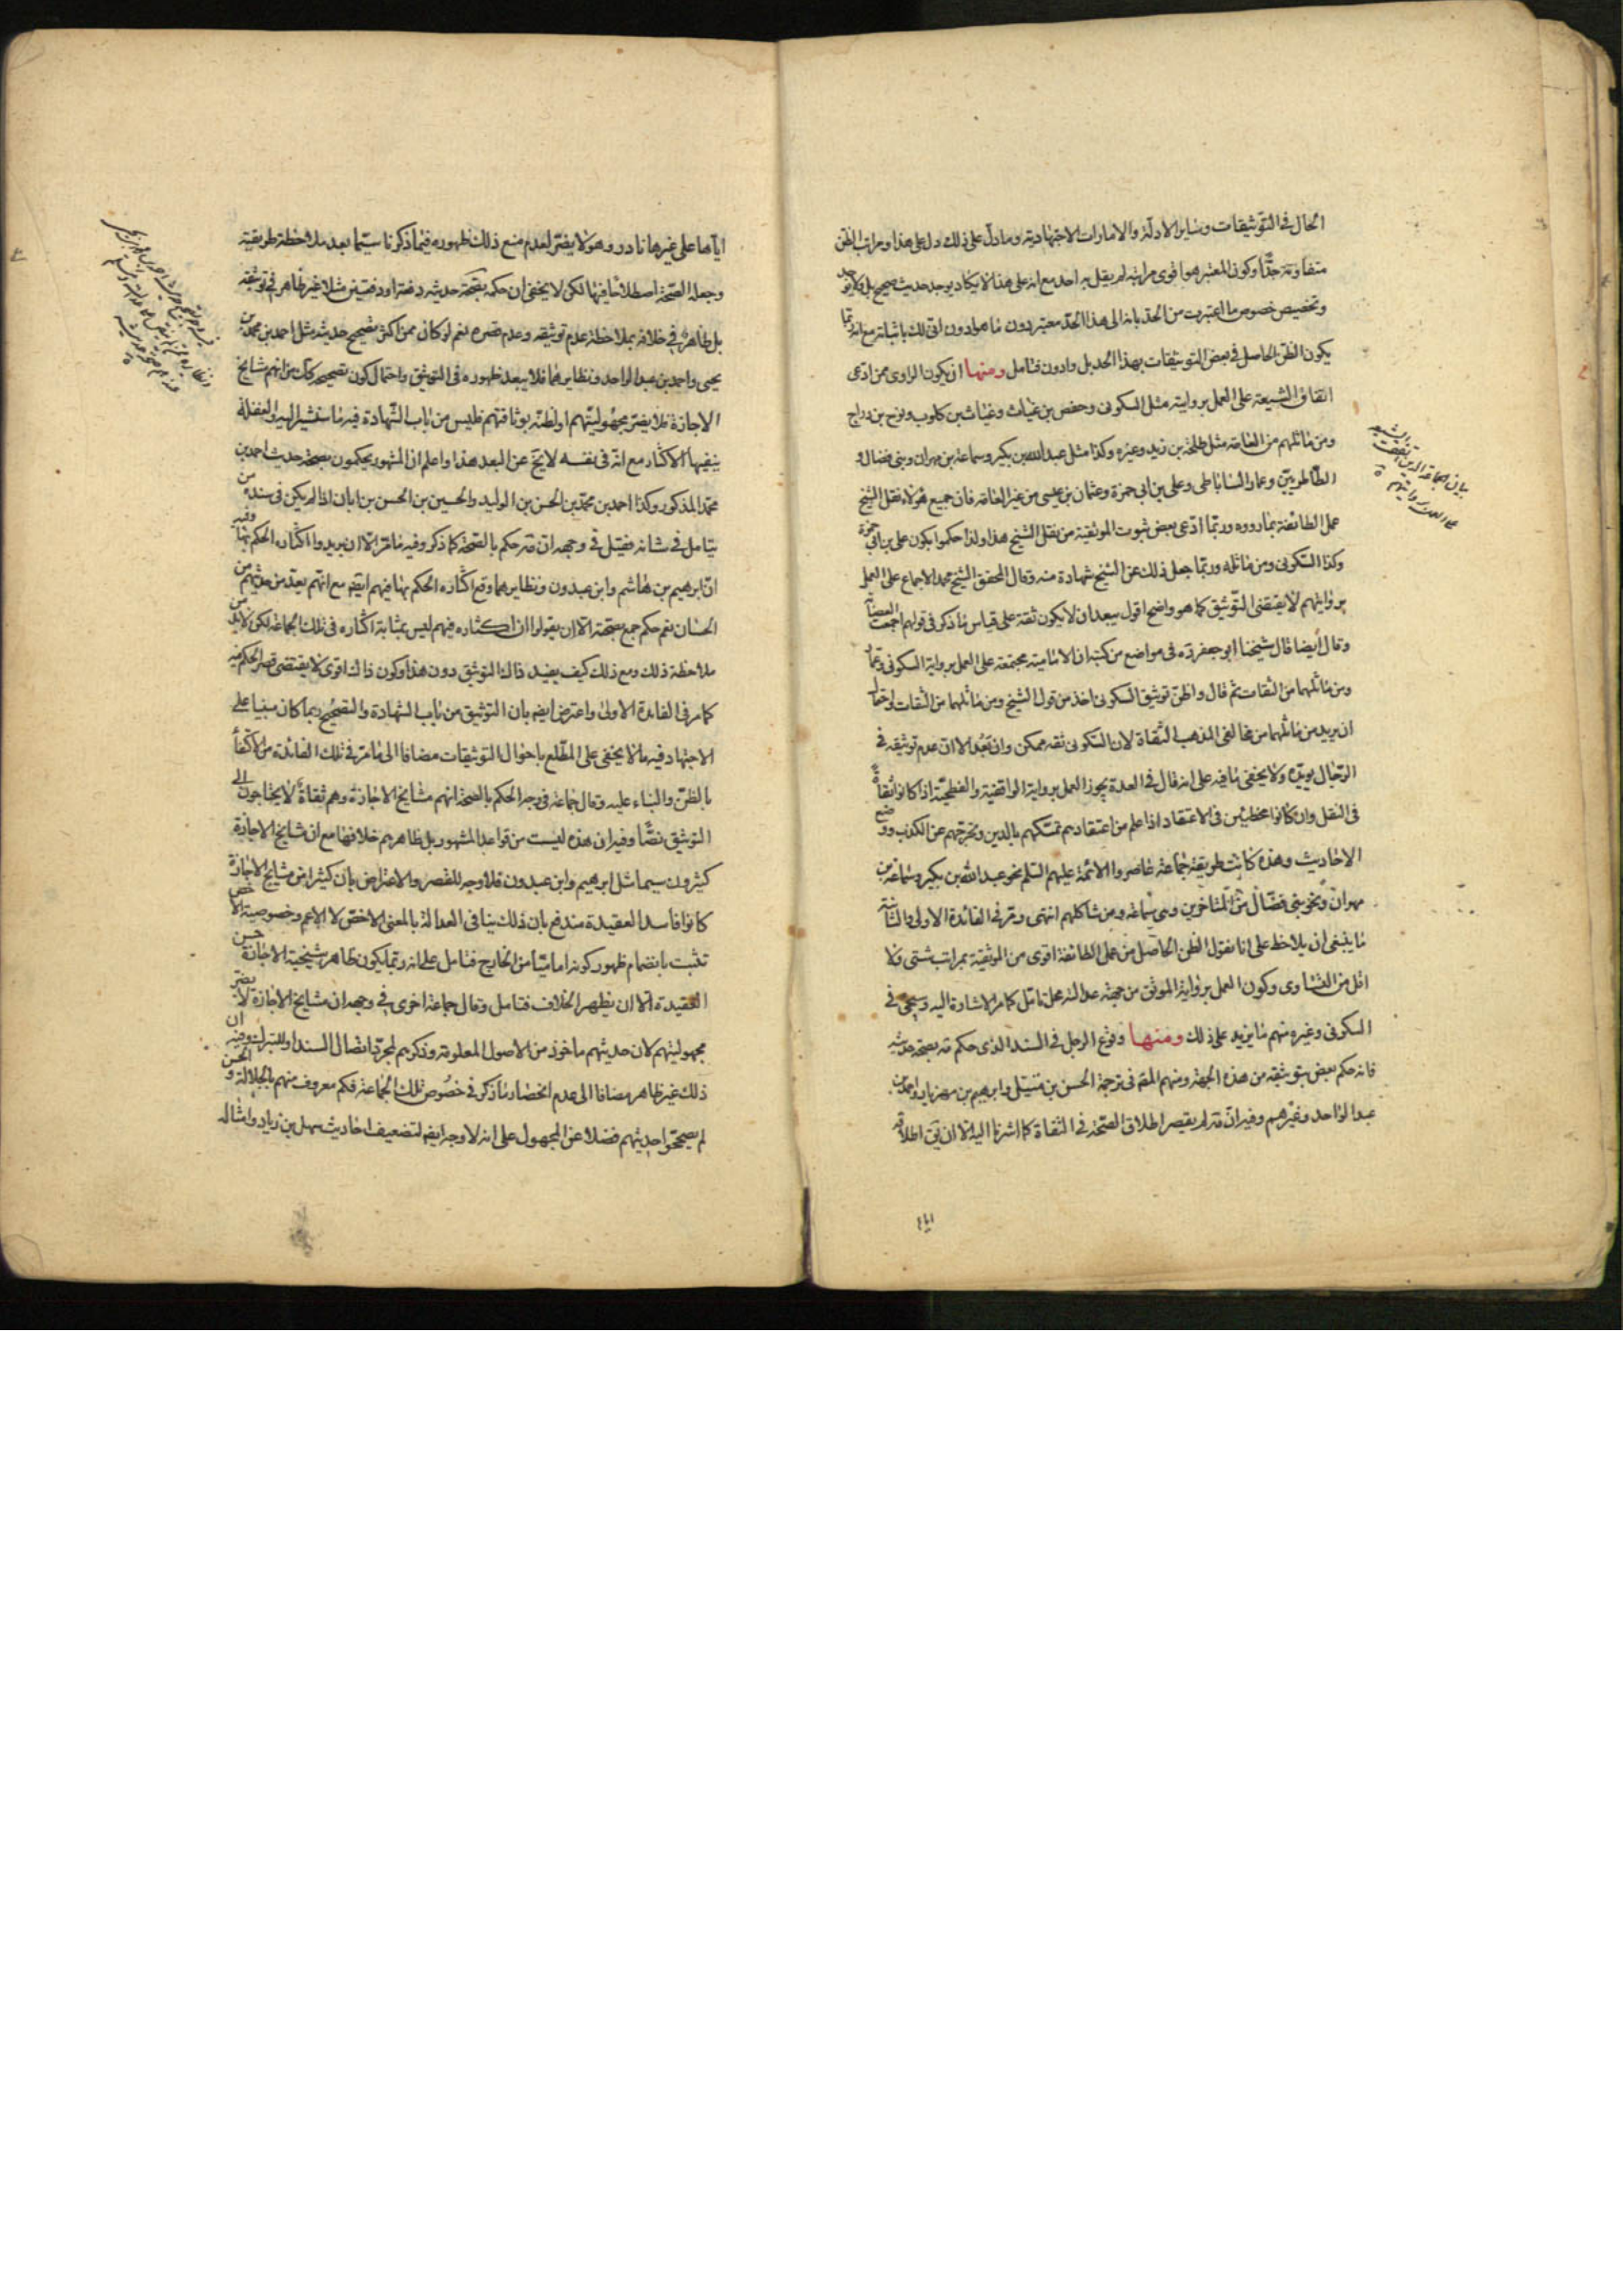 الحال في التوثيقات وساير الادلة والامارات الاجتهادية وما دل على ذلك دل على هذا ومراتب الظن
متفاوتة جدا وكون المعتبر هو اقوى مراتبه لم يقل به احد مع انه على هذا لا يكاد يوجد حديث صحيح بل ولا يوجد
وتخصيص خصوص ما اعتبرت من الحد بانه الى هذا الحد معتبر دون ما هو ادون انى لك باثباته مع انه ربما
يكون الظن الحاصل في بعض التوثيقات بهذا الحد بل وادون فتامل ومنها ان يكون الراوى ممن ادعى
اتفاق الشيعة على العمل بروايته مثل السكونى وحفص بن غياث وغياث بن كلوب ونوح بن دراج
ومن ماثلهم من العامة مثل طلحة بن زيد وغيره وكذا مثل عبد الله بن بكير وسماعة بن مهران وبنى فضال و
الطاطريين وعمار الساباطى وعلى بن ابى حمزة وعثمان بن عيسى من غير العامة فان جميع هؤلاء نقل الشيخ
عمل الطائفة بما رووه وربما ادعى بعض ثبوت الموثقية من نقل الشيخ هذا ولذا حكموا بكون على بن ابى حمزة
وكذا السكونى ومن ماثله وربما جعل ذلك عن الشيخ شهادة منه وقال المحقق الشيخ محمد الاجماع على العمل
بروايتهم لا يقتضى التوثيق كما هو واضح اقول يبعد ان لا يكون ثقة على قياس ما ذكر في قولهم اجمعت العصابة
وقال ايضا قال شيخنا ابو جعفر ره في مواضع من كتبه ان الامامية مجتمعة على العمل برواية السكونى وعمار
ومن ماثلهما من الثقات ثم قال واظن توثيق السكونى اخذ من قول الشيخ ومن ماثلهما من الثقات واحتمال
ان يريد من ماثلهما من مخالفى المذهب الثقاة لان السكونى ثقة ممكن وان بعد الا ان عدم توثيقه في
الرجال يويده ولا يخفى ما فيه على انه قال في العدة يجوز العمل برواية الواقفية والفطحية اذا كانوا ثقاة
في النقل وان كانوا مخطئين في الاعتقاد اذا علم من اعتقادهم تمسكهم بالدين وتحرجهم عن الكذب ووضع
الاحاديث وهذه كانت طريقة جماعة عاصروا الائمة عليهم السلم نحو عبد الله بن بكير وسماعة بن
مهران ونحو بنى فضال من المتاخرين وبنى سماعة ومن شاكلهم انتهى ومر في الفائدة الاولى والثانية
ما ينبغى ان يلاحظ على انا نقول الظن الحاصل من عمل الطائفة اقوى من الموثقية بمراتب شتى ولا
اقل من التساوى وكون العمل برواية الموثق من جهة عدالته محل تامل كما مر الاشارة اليه وسيجئ في
السكونى وغيره منهم ما يزيد على ذلك ومنها وقوع الرجل في السند الذى حكم مه بصحة حديثه
فانه حكم بعض بتوثيقه من هذه الجهة ومنهم المقم في ترجمة الحسن بن متيل وابرهيم بن مهزيار واحمد بن
عبد الواحد وغيرهم وفيه ان مه لم يقصر اطلاق الصحة في الثقاة كما اشرنا اليه الا ان يق اطلاقه
اياها
اياها على غيرها نادر وهو لا يضر لعدم منع ذلك ظهوره فيما ذكرنا سيما بعد ملاحظة طريقته
وجعله الصحة اصطلاحا فيها لكن لا يخفى ان حكمه بصحة حديثه دفعة او دفعتين مثلا غير ظاهر في توثيقه
بل ظاهر في خلافه بملاحظة عدم توثيقه وعدم قصره نعم لو كان ممن اكثر تصحيح حديثه مثل احمد بن محمد بن
يحيى واحمد بن عبد الواحد ونظايرهما فلا يبعد ظهوره في التوثيق واحتمال كون تصحيحه كك من انهم مشايخ
الاجازة فلا يضر مجهوليتهم او لظنه بوثاقتهم فليس من باب الشهادة فيه ما سنشير اليه والغفلة
ينفيها الاكثار مع انه في نفسه لا يخ عن البعد هذا واعلم ان المشهور يحكمون بصحة حديث احمد بن
محمد المذكور وكذا احمد بن محمد بن الحسن بن الوليد والحسين بن الحسن بن ابان اذا لم يكن في سنده من
يتامل في شانه فقيل في وجهه ان مه حكم بالصحة كما ذكر وفيه ما مر الا ان يريدوا اكثاره الحكم بها وفيه
ان ابرهيم بن هاشم وابن عبدون ونظايرهما وقع اكثاره الحكم بها فيهم ايضه مع انهم يعد من حديثهم من
الحسان نعم حكم جمع بصحته الا ان يقولوا ان اكثاره فيهم ليس بمثابة اكثاره في تلك الجماعة لكن لا بد من
ملاحظة ذلك ومع ذلك كيف يفيد ذاك التوثيق دون هذا وكون ذاك اقوى لا يقتضى قصر الحكم فيه
كما مر في الفائدة الاولى واعترض ايضه بان التوثيق من باب الشهادة والتصحيح ربما كان مبنيا على
الاجتهاد وفيه ما لا يخفى على المطلع باحوال التوثيقات مضافا الى ما مر في تلك الفائدة من الاكتفاء
بالظن والبناء عليه وقال جماعة في وجه الحكم بالصحة انهم مشايخ الاجازة وهم ثقاة لا يحتاجون الى
التوثيق نصا وفيه ان هذه ليست من قواعد المشهور بل ظاهرهم خلافها مع ان مشايخ الاجازة
كثيرون سيما مثل ابرهيم وابن عبدون فلا وجه للقصر والاعتراض بان كثيرا من مشايخ الاجازة
كانوا فاسد العقيدة مندفع بان ذلك ينافى العدالة بالمعنى الاخص لا الاعم وخصوصية الاخص
تثبت بانضمام ظهور كونه اماميا من الخارج فتامل على انه ربما يكون ظاهر شيخية الاجازة حسن
العقيدة الا ان يظهر الخلاف فتامل وقال جماعة اخرى في وجهه ان مشايخ الاجازة لا يضر
مجهوليتهم لان حديثهم ماخوذ من الاصول المعلومة وذكرهم لمجرد اتصال السند او للتبرك وفيه ان
ذلك غير ظاهر مضافا الى عدم انحصار ما ذكر في خصوص تلك الجماعة فكم معروف منهم بالجلالة والحسن و
لم يصححوا حديثهم فضلا عن المجهول على انه لا وجه ايضه لتضعيف احاديث سهل بن زياد وامثاله